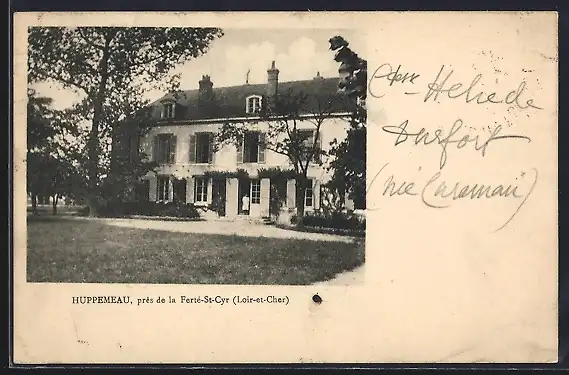 Ctesse Hélie de
Durfort
(née Caraman)
HUPPEMEAU, près de la Ferté-St-Cyr (Loir-et-Cher)